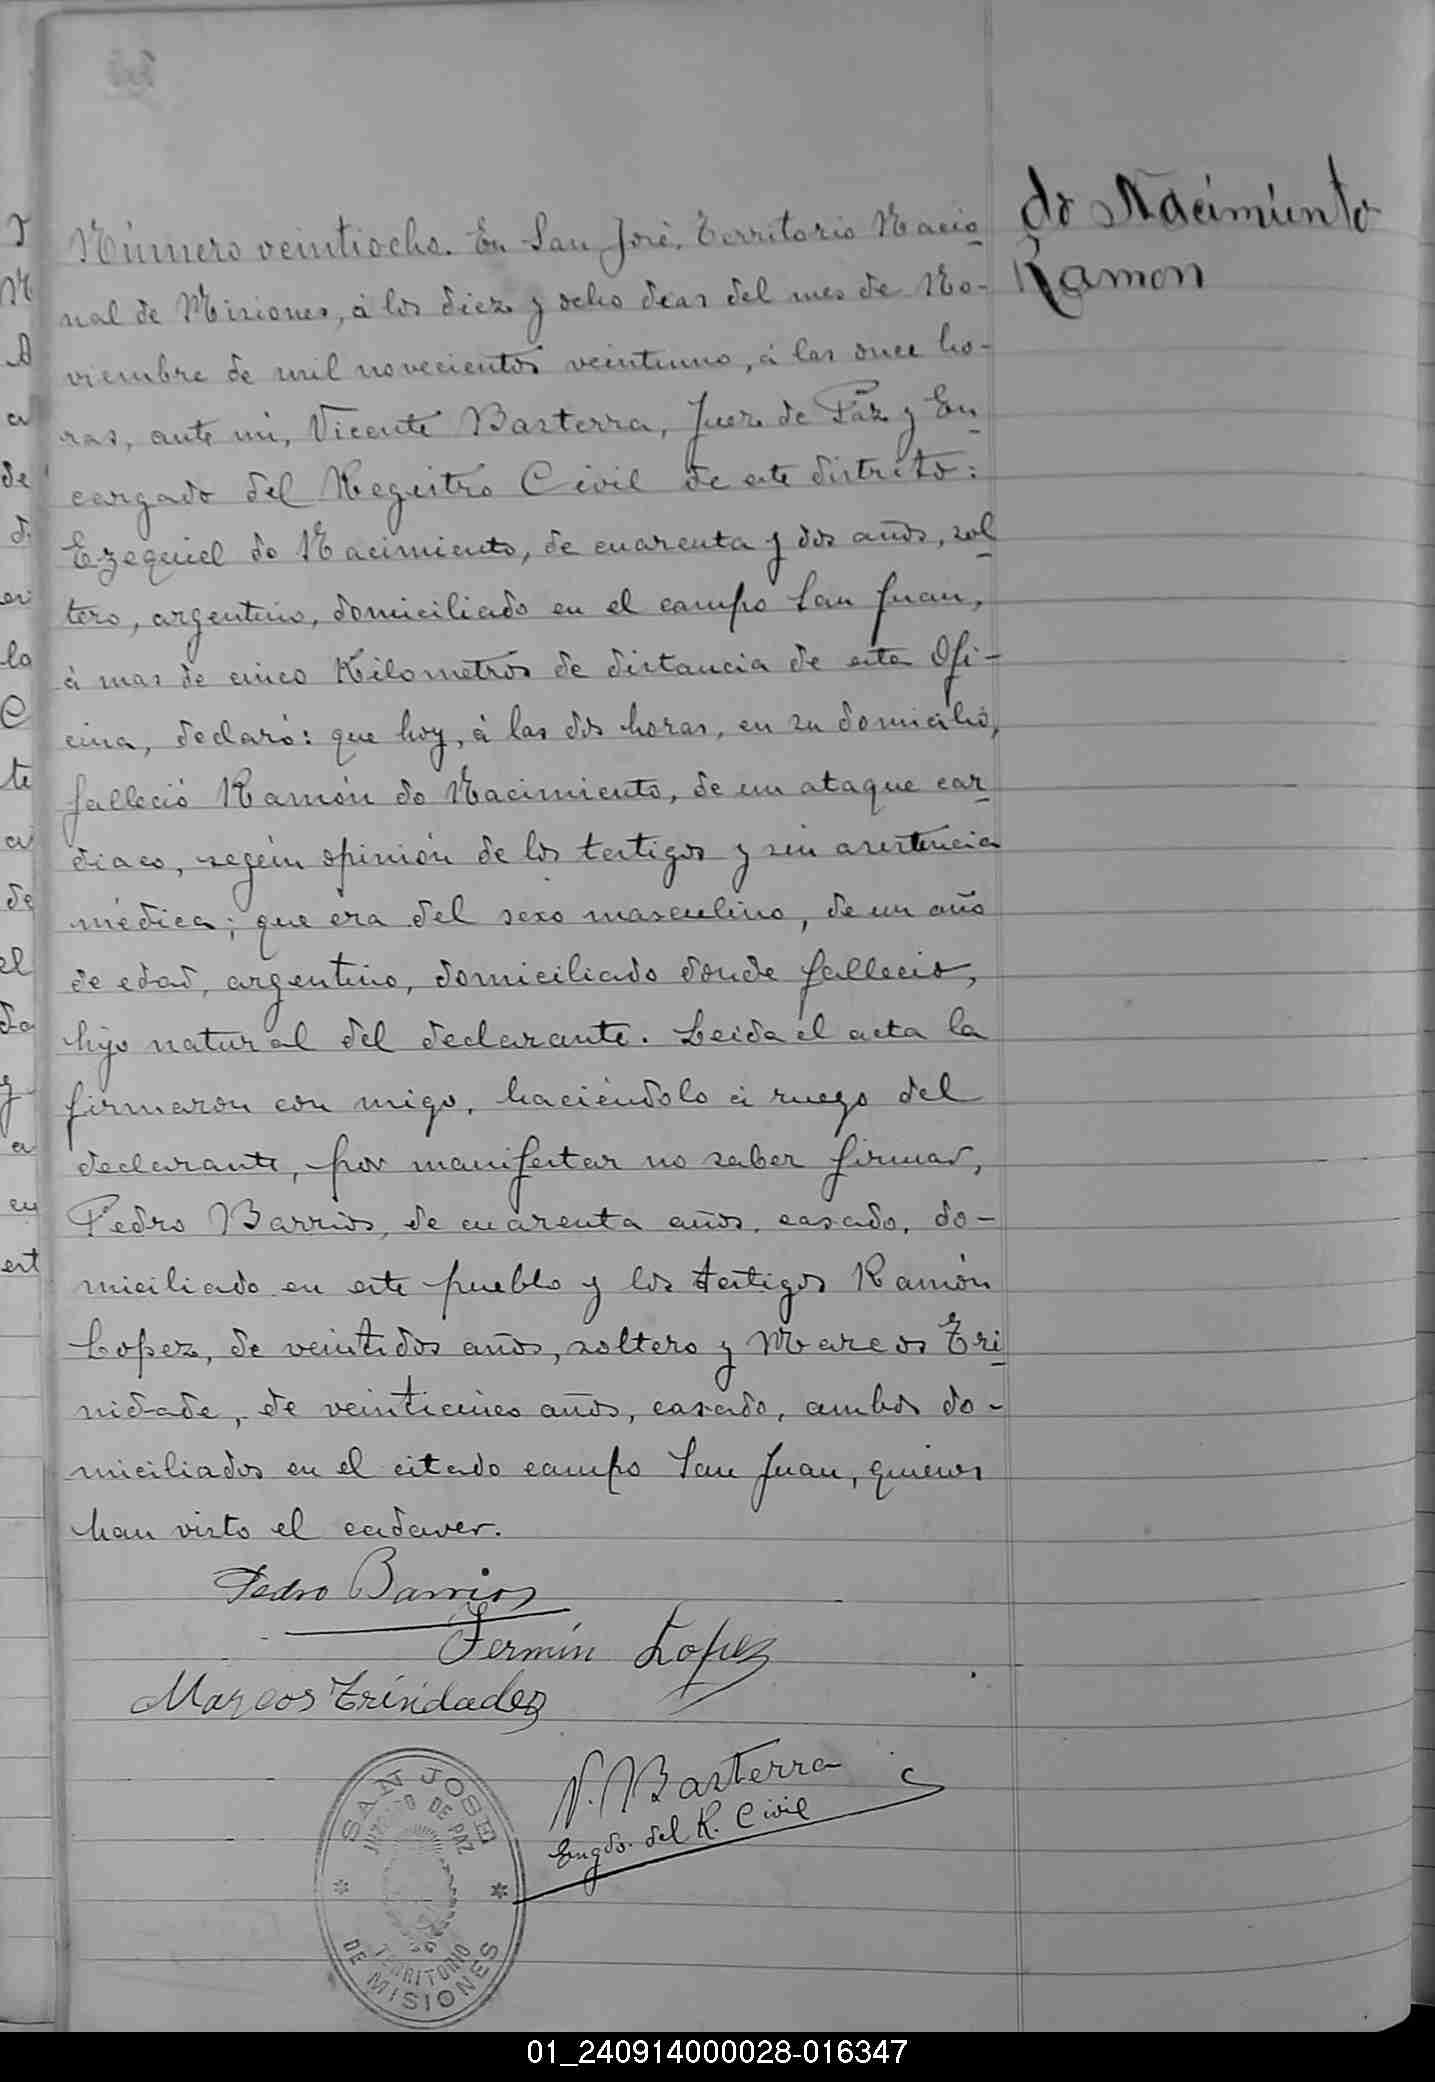 do Nacimiento
Ramon
Número veintiocho. En San José, Territorio Nacio
nal de Misiones, á los diez y ocho dias del mes de No-
viembre de mil novecientos veintiuno, á las once ho-
ras, ante mi, Vicente Basterra, Juez de Paz y En
cargado del Registro Civil de este distrito:
Ezequiel do Nacimiento, de cuarenta y dos años, sol
tero, argentino, domiciliado en el campo San Juan,
á mas de cinco Kilometros de distancia de esta Ofi-
cina, declaró: que hoy, á las dos horas, en su domicilio,
falleció Ramón do Nacimiento, de un ataque car
diaco, según opinión de los testigos y sin asistencia
médica; que era del sexo masculino, de un año
de edad, argentino, domiciliado donde falleció,
hijo natural del declarante. Leida el acta la
firmaron con migo, haciéndolo á ruego del
declarante, por manifestar no saber firmar,
Pedro Barrios, de cuarenta años, casado, do-
miciliado en este pueblo y los testigos Ramón
Lopez, de veintidos años, soltero y Marcos Tri
nidade, de veinticinco años, casado, ambos do-
miciliados en el citado campo San Juan, quienes
han visto el cadaver.
Pedro Barrios
Fermín Lopez
Marcos Trindadez
V. Basterra
Engdo. del R. Civil
SAN JOSE
JUZGADO DE PAZ
TERRITORIO
DE MISIONES
01_240914000028-016347